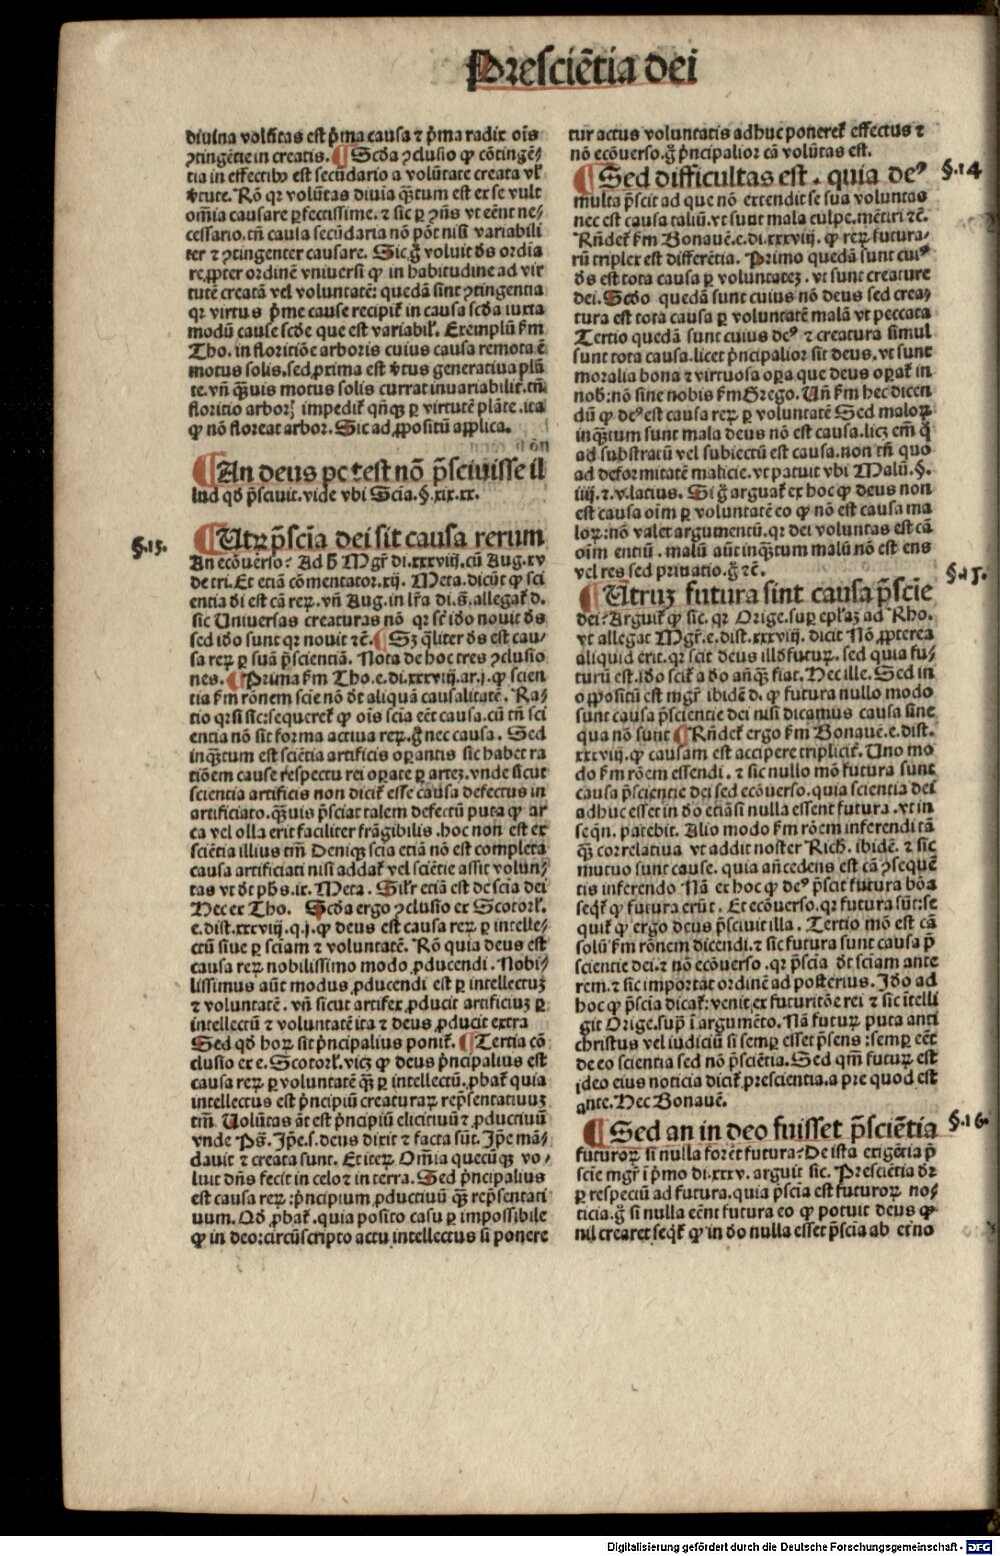 Presciẽtia dei
diuina volũtas est p̃ma causa ⁊ p̃ma radix oĩs
ꝯtingẽtie in creatis. ¶ Scďa ꝯclusio ꝙ cõtingẽ-
tia in effectibꝰ est secũdario a volũtate creata vľ
v̓tute. Rõ qꝛ volũtas diuĩa q̃ꝫtum est ex se vult
om̃ia causare ꝑfectissime. ⁊ sic ꝑ ꝯñs vt eẽnt ne-
cessario. tñ causa secũdaria nõ põt nisi variabili
ter ⁊ ꝯtingenter causare. Sic g̃ voluit ďs ordĩa
re, ꝓpter ordinẽ vniuersi ꝙ in habitudine ad vir
tutẽ creatã vel voluntatẽ: quedã sint ꝯtingentia
qꝛ virtus p̃me cause recipit᷑ in causa scďa iuxta
modũ cause scďe que est variabil᷑. Exemplũ ẜm
Tho. in floritiõe arboris cuius causa remota ẽ
motus solis. sed ꝓxima est v̓tus generatiua plã
te. vñ q̃ꝫuis motus solis currat inuariabilit᷑. tñ
floritio arborꝭ impedit᷑ qñqꝫ ꝑ virtutẽ plãte. ita
ꝙ nõ floreat arbor. Sic ad ꝓpositũ applica.
¶ An deus potest nõ p̃sciuisse il
lud qď p̃sciuit. vide vbi Scia. §. xix. xx.
§. 13.
¶ Utrꝫ p̃scĩa dei sit causa rerum
An ecõuerso? Ad ħ Mgr̃ di. xxxviij. cũ Aug. xv
de tri. Et etiã cõmentator. xij. Meta. dicũt ꝙ sci
entia di est cã reꝝ. vñ Aug. in lr̃a di. s̃. allegat᷑ d.
sic Uniuersas creaturas nõ qꝛ st̃ iďo nouit ďs
sed iďo sunt qꝛ nouit ⁊c̃. ¶ Sꝫ q̃liter ďs est cau-
sa reꝝ ꝑ suã p̃scientiã. Nota de hoc tres ꝯclusio
nes. ¶ Prima ẜm Tho. e. di. xxxviij. ar. j. ꝙ scien
tia ẜm rõnem scie nõ ďt aliquã causalitatẽ. Ra-
tio qꝛ si sic: sequeret᷑ ꝙ oĩs scia eẽt causa. cũ tñ sci
entia nõ sit forma actiua reꝝ. g̃ nec causa. Sed
inq̃ꝫtum est sciẽtia artificis oꝑantis sic habet ra
tiõem cause respectu rei oꝑate ꝑ artẽꝫ. vnde sicut
scientia artificis non dicit᷑ esse causa defectus in
artificiato. q̃ꝫuis p̃sciat talem defectũ puta ꝙ ar
ca vel olla erit faciliter frãgibilis. hoc non est ex
sciẽtia illius tm̃ Deniqꝫ scia etiã nõ est completa
causa artificiati nisi addat᷑ vel sciẽtie assit volun-
tas vt ďt ph̃s. ix. Meta. Sil᷑r etiã est de scia dei
Hec ex Tho. Scďa ergo ꝯclusio ex Scotorľ.
e. dist. xxxviij. q. j. ꝙ deus est causa reꝝ ꝑ intelle-
ctũ siue ꝑ sciam ⁊ voluntatẽ. Rõ quia deus est
causa reꝝ nobilissimo modo ꝓducendi. Nobi-
lissimus aũt modus ꝓducendi est ꝑ intellectuꝫ
⁊ voluntatẽ. vñ sicut artifex ꝓducit artificiuꝫ ꝑ
intellectũ ⁊ voluntatẽ ita ⁊ deus ꝓducit extra
Sed qď hoꝝ sit p̃ncipalius ponit᷑. ¶ Tertia cõ
clusio ex e. Scotorľ. vicꝫ ꝙ deus p̃ncipalius est
causa reꝝ ꝑ voluntatẽ q̃ꝫ ꝑ intellectũ. ꝓbat᷑ quia
intellectus est p̃ncipiũ creaturaꝝ rep̃sentatiuuꝫ
tm̃. Uolũtas aũt est p̃ncipiũ elicitiuũ ⁊ ꝓductiuũ
vnde Ps̃. Ip̃e. s. deus dixit ⁊ facta sũt. Ip̃e mã-
dauit ⁊ creata sunt. Et iteꝝ Om̃ia quecũqꝫ vo-
luit dñs fecit in celo ⁊ in terra. Sed p̃ncipalius
est causa reꝝ: p̃ncipium ꝓductiuũ q̃ꝫ rep̃sentati
uum. Qď ꝓbat᷑. quia posito casu ꝑ impossibile
ꝙ in deo: circũscripto actu intellectus si ponere
tur actus voluntatis adhuc poneret᷑ effectus ⁊
nõ ecõuerso. g̃ p̃ncipalior cã volũtas est.
§. 14
¶ Sed difficultas est. quia deꝰ
multa p̃scit ad que nõ extendit se sua voluntas
nec est causa taliũ. vt sunt mala culpe. mẽtiri ⁊c̃.
Rñdet᷑ ẜm Bonauẽ. e. di. xxxviij. ꝙ reꝝ futura-
rũ triplex est differẽtia. Primo quedã sunt cuiꝰ
ďs est tota causa ꝑ voluntateꝫ. vt sunt creature
dei. Scďo quedã sunt cuius nõ deus sed crea-
tura est tota causa ꝑ voluntatẽ malã vt peccata
Tertio quedã sunt cuius deꝰ ⁊ creatura simul
sunt tota causa. licet p̃ncipalior sit deus. vt sunt
moralia bona ⁊ virtuosa oꝑa que deus oꝑat᷑ in
nob: nõ sine nobis ẜm Grego. Uñ ẜm hec dicen
dũ ꝙ deꝰ est causa reꝝ ꝑ voluntatẽ Sed maloꝝ
inq̃ꝫtum sunt mala deus nõ est causa. licꝫ em̃ q̃
ad substratũ vel subiectũ est causa. non tñ quo
ad deformitatẽ malicie. vt patuit vbi Malũ. §.
iiij. ⁊. v. latius. Si g̃ arguat᷑ ex hoc ꝙ deus non
est causa oĩm ꝑ voluntatẽ eo ꝙ nõ est causa ma
loꝝ: nõ valet argumentũ. qꝛ dei voluntas est cã
oĩm entiũ. malũ aũt inq̃ꝫtum malũ nõ est ens
vel res sed priuatio. g̃ ⁊c̃.
§. 15.
¶ Utruꝫ futura sint causa p̃scie
dei? Arguit᷑ ꝙ sic. qꝛ Orige. suꝑ epľaꝫ ad Rho.
vt allegat Mgr̃. e. dist. xxxviij. dicit Nõ ꝓpterea
aliquid erit. qꝛ scit deus illď futuꝝ. sed quia fu-
turũ est. iďo scit᷑ a ďo añq̃ꝫ fiat. Hec ille. Sed in
oppositũ est mgr̃ ibidẽ d. ꝙ futura nullo modo
sunt causa p̃scientie dei nisi dicamus causa sine
qua nõ sunt ¶ Rñdet᷑ ergo ẜm Bonauẽ. e. dist.
xxxviij. ꝙ causam est accipere triplicit᷑. Uno mo
do ẜm rõem essendi. ⁊ sic nullo mõ futura sunt
causa p̃scientie dei sed ecõuerso. quia scientia dei
adhuc esset in ďo etiãsi nulla essent futura. vt in
seqñ. patebit. Alio modo ẜm rõem inferendi tã
q̃ꝫ correlatiua vt addit noster Rich. ibidẽ. ⁊ sic
mutuo sunt cause. quia añcedens est cã ꝯsequẽ
tis inferendo Nã ex hoc ꝙ deꝰ p̃scit futura bõa
seqt᷑ ꝙ futura erũt. Et ecõuerso. qꝛ futura sũt: se
quit᷑ ꝙ ergo deus p̃sciuit illa. Tertio mõ est cã
solũ ẜm rõnem dicendi. ⁊ sic futura sunt causa p̃
scientie dei. ⁊ nõ ecõuerso. qꝛ p̃scia ďt sciam ante
rem. ⁊ sic importat ordinẽ ad posterius. Iďo ad
hoc ꝙ p̃scia dicat᷑: venit ex futuritiõe rei ⁊ sic ĩtelli
git Orige. sup̃ ĩ argumẽto. Nã futuꝝ puta anti
christus vel iudiciũ si semꝑ esset p̃sens: semꝑ eẽt
de eo scientia sed nõ p̃sciẽtia. Sed qm̃ futuꝝ est
ideo eius noticia dicit᷑ prescientia. a pre quod est
ante. Hec Bonauẽ.
§. 16.
¶ Sed an in deo fuisset p̃sciẽtia
futuroꝝ si nulla forẽt futura? De ista exigẽtia p̃
scie mgr̃ ĩ p̃mo di. xxxv. arguit sic. Presciẽtia dr̃
ꝑ respectũ ad futura. quia p̃scia est futuroꝝ no-
ticia. g̃ si nulla eẽnt futura eo ꝙ potuit deus ꝙ
nil crearet seqt᷑ ꝙ in ďo nulla esset p̃scia ab etno
Digitalisierung gefördert durch die Deutsche Forschungsgemeinschaft - DFG